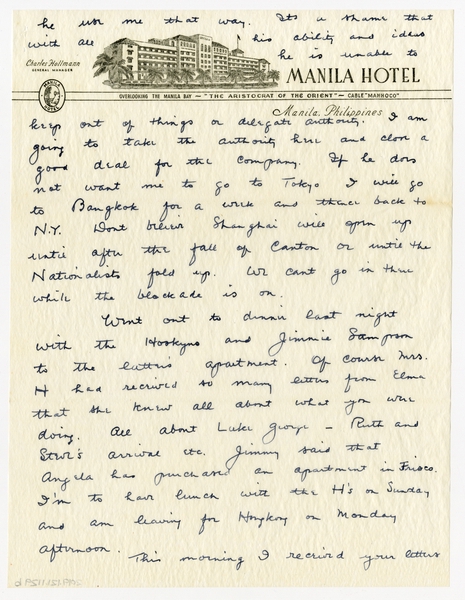 he use me that way. Its a shame that
with all his ability and ideas
he is unable to
Charles Hallmann
GENERAL MANAGER
MANILA HOTEL
MANILA HOTEL
OVERLOOKING THE MANILA BAY — "THE ARISTOCRAT OF THE ORIENT" — CABLE "MANHOCO"
Manila, Philippines
keep out of things or delegate authority. I am
going to take the authority here and close a
good deal for the company. If he does
not want me to go to Tokyo I will go
to Bangkok for a week and thence back to
N.Y. Dont believe Shanghai will open up
until after the fall of Canton or until the
Nationalists fold up. We cant go in there
while the blockade is on.
Went out to dinner last night
with the Hoskyns and Jimmie Sampson
to the latters apartment. Of course Mrs.
H had received so many letters from Elma
that she knew all about what you were
doing. All about Luke George — Ruth and
Steve's arrival etc. Jimmy said that
Angela has purchased an apartment in Frisco.
I'm to have lunch with the H's on Sunday
and am leaving for Hongkong on Monday
afternoon. This morning I received your letters